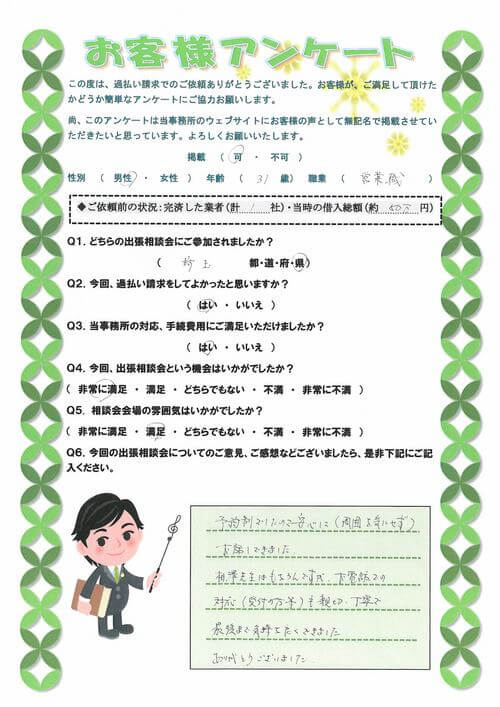 お客様アンケート
この度は、過払い請求でのご依頼ありがとうございました。お客様が、ご満足して頂けた
かどうか簡単なアンケートにご協力お願いします。
尚、このアンケートは当事務所のウェブサイトにお客様の声として無記名で掲載させてい
ただきたいと思っています。よろしくお願いいたします。
掲載 ( 可 ・ 不可 )
性別 ( 男性 ・ 女性 ) 年齢 ( 31 歳) 職業 ( 営業職 )
◆ご依頼前の状況:完済した業者(計 1 社)・当時の借入総額(約 50万 円)
Q1. どちらの出張相談会にご参加されましたか?
( 埼玉 都・道・府・県)
Q2. 今回、過払い請求をしてよかったと思いますか?
( はい ・ いいえ )
Q3. 当事務所の対応、手続費用にご満足いただけましたか?
( はい ・ いいえ )
Q4. 今回、出張相談会という機会はいかがでしたか?
( 非常に満足 ・ 満足 ・ どちらでもない ・ 不満 ・ 非常に不満 )
Q5. 相談会会場の雰囲気はいかがでしたか?
( 非常に満足 ・ 満足 ・ どちらでもない ・ 不満 ・ 非常に不満 )
Q6. 今回の出張相談会についてのご意見、ご感想などございましたら、是非下記にご記
入ください。
予約制でしたので安心して(周囲を気にせず)
お話しできました。
はもちろんですが、お電話での
対応(受付の方等)も親切、丁寧で
最後まで気持ちよくできました
ありがとうございました